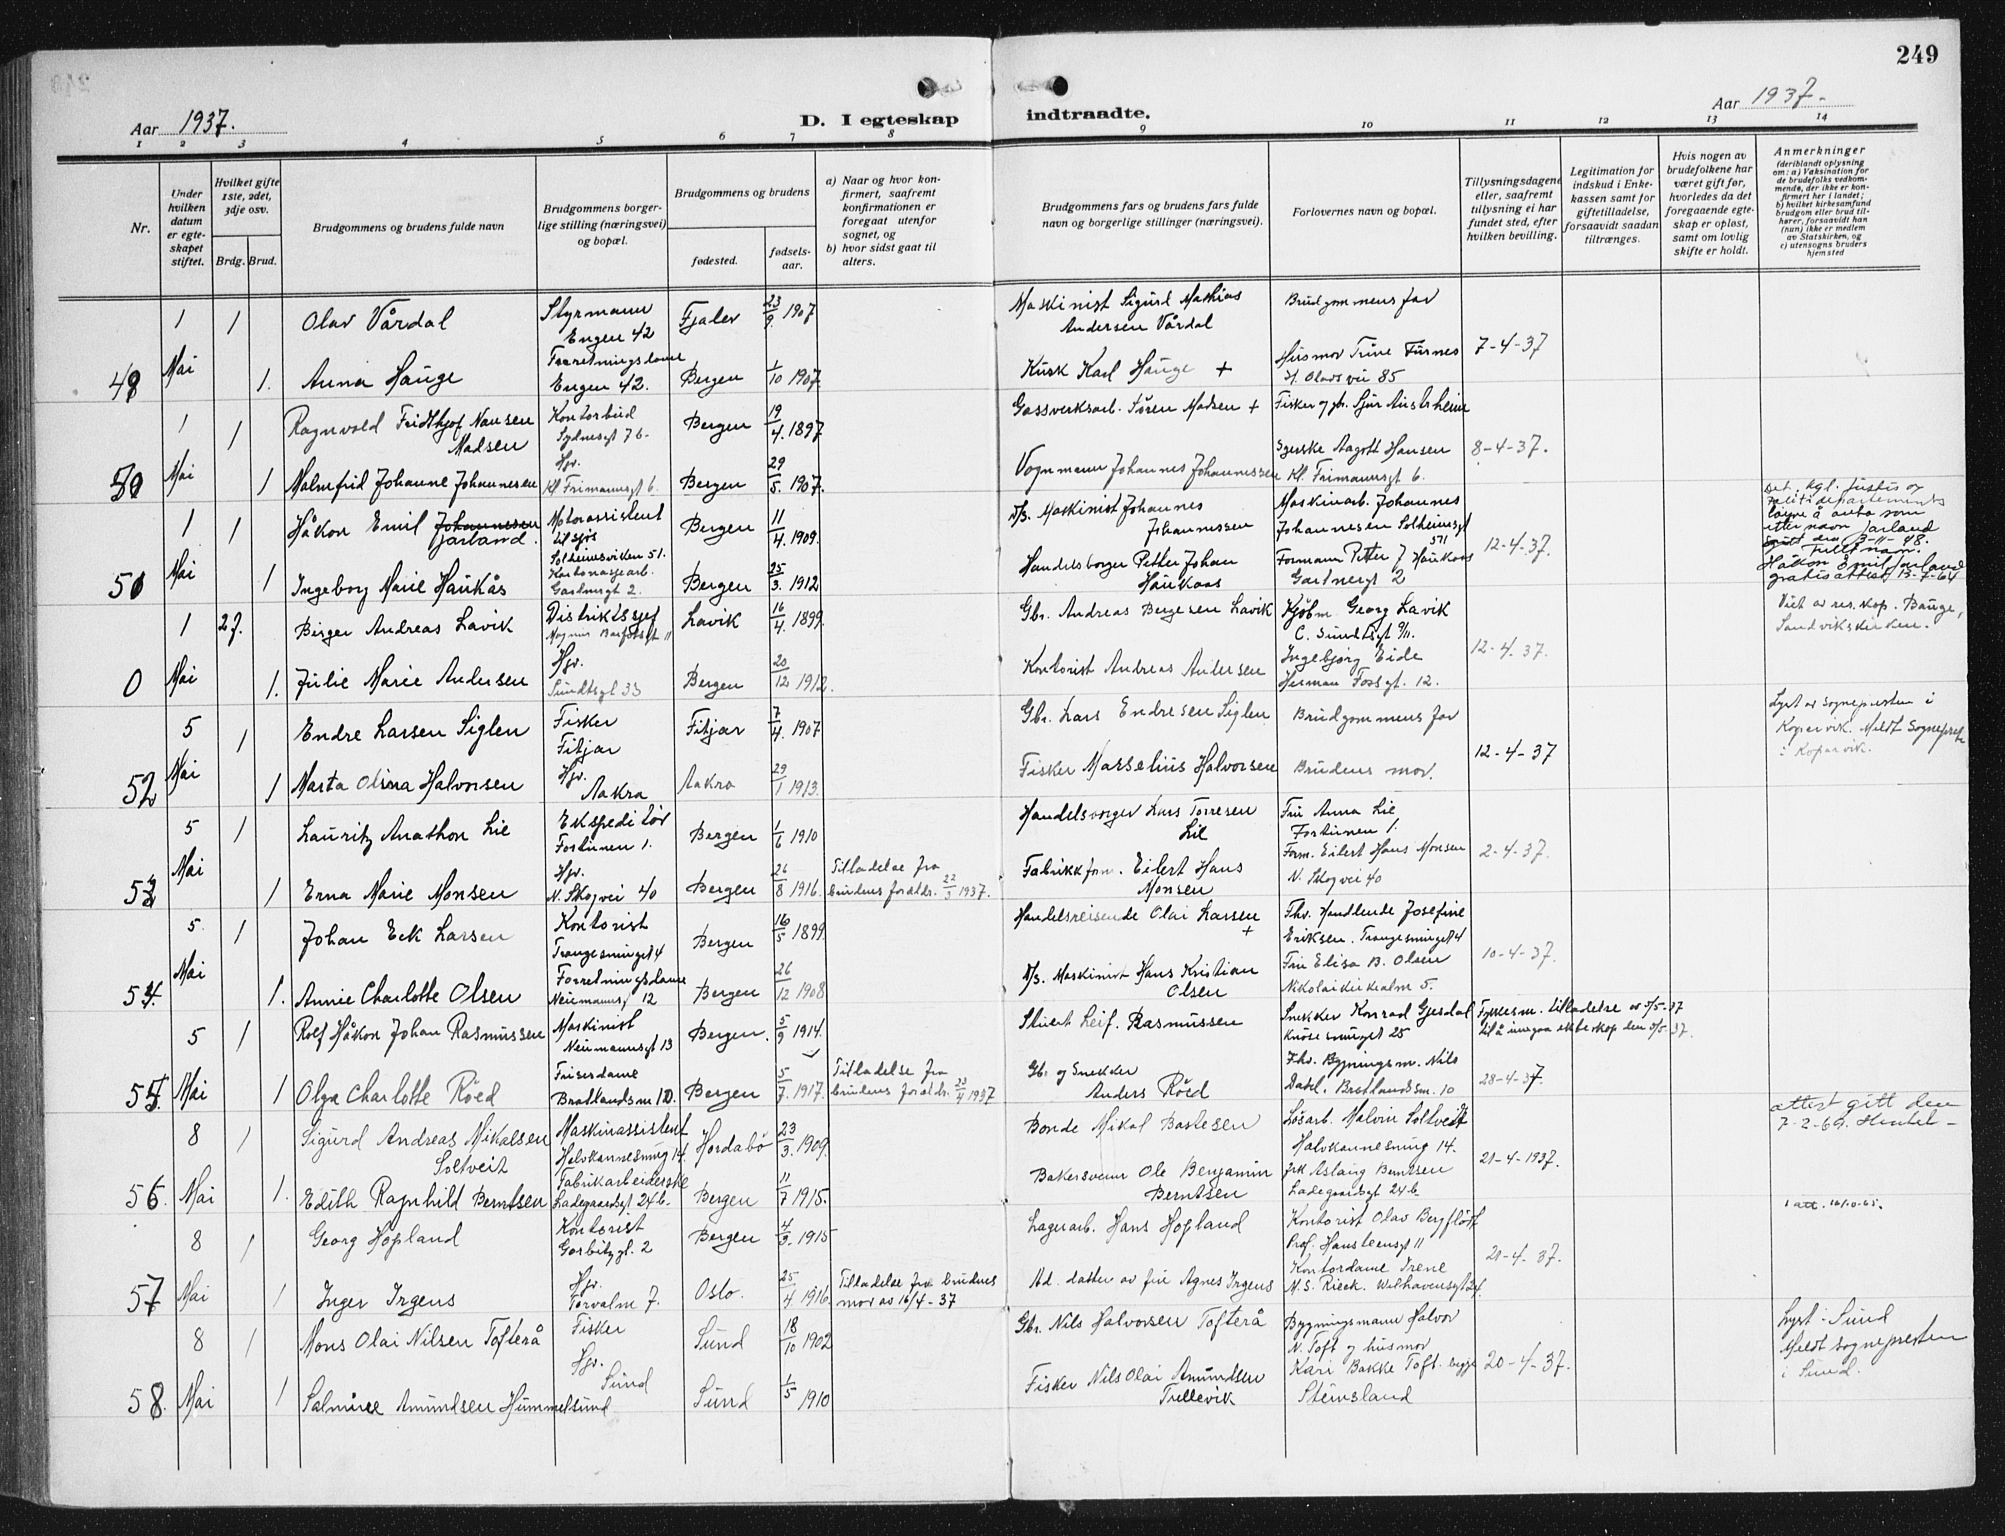 249
Aar 1937.
D. I egteskap indtraadte.
Aar 1937.
1 2 3 4 5 6 7 8 9 10 11 12 13 14
Nr.
Under hvilken datum er egteskapet stiftet.
Hvilket gifte 1ste, 2det, 3dje osv.
Brdg. Brud.
Brudgommens og brudens fulde navn
Brudgommens borgerlige stilling (næringsvei) og bopæl.
Brudgommens og brudens
fødested.
fødselsaar.
a) Naar og hvor konfirmert, saafremt konfirmationen er foregaat utenfor sognet, og
b) hvor sidst gaat til alters.
Brudgommens fars og brudens fars fulde navn og borgerlige stillinger (næringsvei).
Forlovernes navn og bopæl.
Tillysningsdagene eller, saafremt tillysning ei har fundet sted, efter hvilken bevilling.
Legitimation for indskud i Enkekassen samt for giftetilladelse, forsaavidt saadan tiltrænges.
Hvis nogen av brudefolkene har været gift før, hvorledes da det foregaaende egteskap er opløst, samt om lovlig skifte er holdt.
Anmerkninger
(deriblandt oplysning om: a) Vaksination for de brudefolks vedkommende, der ikke er konfirmert her i landet; b) hvilket kirkesamfund brudgom eller brud tilhører, forsaavidt han (hun) ikke er medlem av Statskirken, og c) utensogns bruders hjemsted
1 1 Olav Vårdal Styrmann Engen 42 Fjaler 23/9 1907 Maskinist Sigurd Mathias Andersen Vårdal Brudgommens far
49 Mai 1. Anna Hauge Forretningsdame Engen 42. Bergen 1/10 1907 Kusk Karl Hauge + Husmor Trine Furnes St. Olads vei 85 7-4-37
1 1 Ragnvald Fridthjof Nansen Madsen Kontorbud Sydnesgt 76- Bergen 19/4. 1897 Gassverksarb. Søren Madsen + Fisker og gbr. Sjur Austrheim
50 Mai 1 Malmfrid Johanne Johannesen Hjv. Kl. Frimannsgt 6. Bergen 29/5. 1907. Vognmann Johannes Johannessen Aagott Hansen Kl. Frimannsgt 6. 8-4-37.
1 1 Håkon Emil Johannessen Jarland. Motorassistent til sjøs Solheimsviken 51. Bergen 11/4. 1909. D/s. Maskinist Johannes Johannessen Maskinarb. Johannes Johannesen Solheimsgt 51
Det. kgl. Justis og politidepartements
etternavn Jarland
13-11-48.
Fullt navn:
Håkon Emil Jarland
gratisattest 13-7-64
51 Mai 1 Ingeborg Marie Haukås Kartonasjearb. Gartnergt 2. Bergen 25/3. 1912 Handelsborger Petter Johan Haukaas Formann Petter J Haukaas Gartnergt 2 12-4-37.
1 27. Birger Andreas Lavik Distriktssjef Magnus Barfotsgt 11 Lavik 16/4. 1899. Gbr. Andreas Bergesen Lavik Kjøbm. Georg Lavik C. Sundtsgt 9/11.
Viet av res. kap. Bauge, Sandvikskirken.
0 Mai 1. Julie Marie Andersen Hjv. Sundtsgt 33 Bergen 20/12 1912. Kontorist Andreas Andersen Ingebjørg Eide Herman Fossgt. 12. 12-4.37.
5 1 Endre Larsen Siglen Fisker Fitjar Fitjar 7/4. 1907 Gbr. Lars Endresen Siglen Brudgommens far
Lyst av sognepresten i Kopervik. Meldt sognepresten i Kopervik.
52 Mai 1 Marta Olina Halvorsen Hjv. Aakra Aakra 29/1 1913. Fisker Masselius Halvorsen Brudens mor. 12-4-37
5 1 Lauritz Anathon Lie Ekspeditør Fortunen 1. Bergen 1/6 1910 Handelsborger Lars Torresen Lie Fru Anna Lie, Fortunen 1.
53 Mai 1 Erna Marie Monsen Hjv. N. Skogvei 40 Bergen 26/8 1916. Tilladelse fra brudens foreldr. 22/3 1937. Fabrikkform. Eilert Hans Monsen Form. Eilert Hans Monsen N. Skogvei 40 2-4-37.
5. 1 Johan Eek Larsen Kontorist Trangesmuget 4 Bergen 16/5 1899 Handelsreisende Olai Larsen + Fhv. Handlende Josefine Eriksen. Trangesmuget 4
54. Mai 1. Annie Charlotte Olsen Forretningsdame Neumannsgt 12 Bergen 26/12 1908 D/s. Maskinist Hans Kristian Olsen Fru Elisa B. Olsen Nikolaikirkealm 5. 10-4-37.
5 1 Rolf Håkon Johan Rasmussen Maskinist Neumannsgt 13 Bergen. 5/9 1914. Stuert Leif. Rasmussen Snekker Konrad Gjesdal Knøsesmuget 25 Fylkesm. tilladelse av 5/5-37 til å inngaa ekteskap den 5/5-37.
55. Mai 1 Olga Charlotte Røed Friserdame Bratlandsm 10. Bergen 5/7. 1917. Tilladelse fra brudens foreldr. 23/4 1937 Gbr. og Snekker Anders Røed Fhv. Bygningsm. Nils Dahl. Bratlandsm. 10 28-4-37.
8 1 Sigurd Andreas Mikalsen Soltveit Maskinassistent Halvkannesmug 14. Hordabø 23/3. 1909. Bonde Mikal Bastesen Løsarb. Malvin Soltveit Halvkannesmug 14.
attest gitt den 7-2-69.
56. Mai 1. Edith Ragnhild Berntsen Fabrikarbeiderske Ladegaardsgt 24b. Bergen 11/7 1915. Bakersvenn Ole Benjamin Berntsen frk Aslaug Berntsen Ladegaardsgt 24b. 21-4-1937.
8 1 Georg Hopland Kontorist Gorbitzgt. 2 Bergen 4/3. 1915 Lagerarb. Hans Hopland Kontorist Olav Bergflødt Prof. Hansteensgt 11
1 att. 16/10-65.
57 Mai 1 Inger Irgens Hjv. Torvalm 7. Oslo. 25/4 1916. Tilladelse fra brudens mor av 16/4-37 Ad. datter av fru Agnes Irgens Kontordame Irene M.S. Rieck. Welhavensgt 21-4-37.
8 1 Mons Olai Nilsen Tofterå Fisker Sund 18/10 1902 Gbr. Nils Halvorsen Tofterå Bygningsmann Halvor N. Toft og husmor
Lyst i Sund Meldt sognepresten i Sund.
58 Mai 1 Salmine Amundsen Hummelsund Hjv. Sund Sund 1/5 1910 Fisker Nils Olai Amundsen Trellevik Kari Bakke Toft. begge Steinsland 20-4-37.